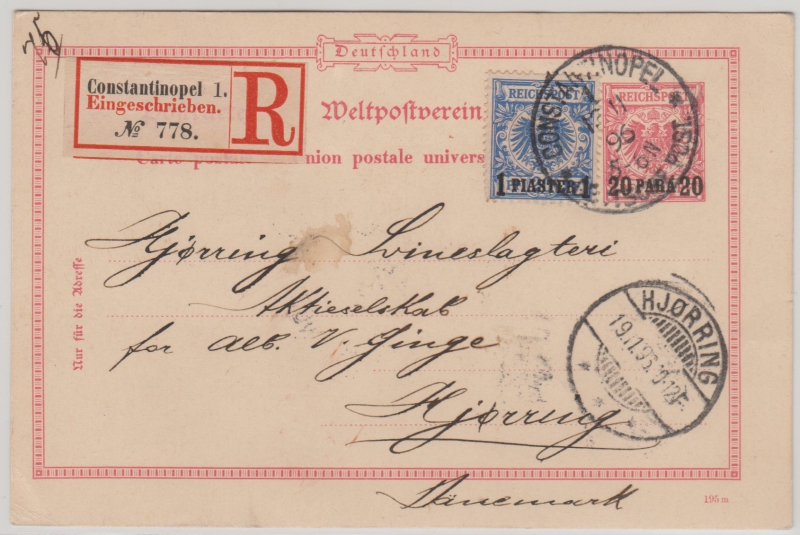 75
Deutschland
Constantinopel 1.
Eingeschrieben.
№ 778.
R
Weltpostverein
nion postale univers
REICHSPOST
1 PIASTER 1
REICHSPOST
20 PARA 20
CONSTANTINOPEL
96
Hjørring Svineslagteri
Aktieselskab
for Alb. V. Jinge
Hjørring
Dänemark
Nur für die Adresse
HJØRRING
19.11.96.
195 m